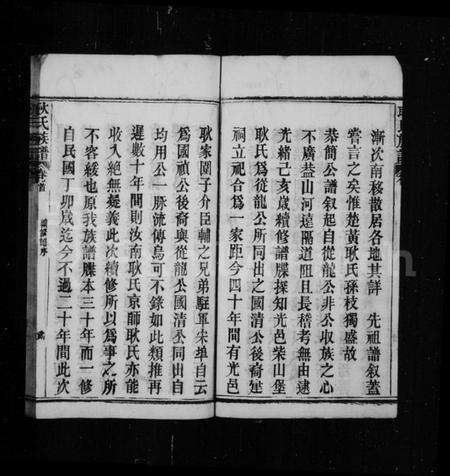 漸次南移散居各地其詳 先祖譜叙蓋
嘗言之矣惟楚黃耿氏孫枝獨盛故
恭簡公譜叙起自從龍公非公取族之心
不廣葢山河遠隔道阻且長稽考無由逮
光緒己亥歲續修譜牒探知光邑柴山堡
耿氏為從龍公所同出之國清公後裔建
祠立祀合為一家距今四十年間有光邑
耿家園子介臣輔之兄弟駐軍宋埠自云
為國禎公後裔與從龍公國清公同出自
均用公一脈流傳烏可不錄如此類推再
遲數十年間則汝南耿氏京師耿氏亦能
收入絕無疑義此次續修所以為事之所
不容緩也原我族譜牒本三十年而一修
自民國丁卯歲迄今不過二十年間此次
耿氏族譜 卷首